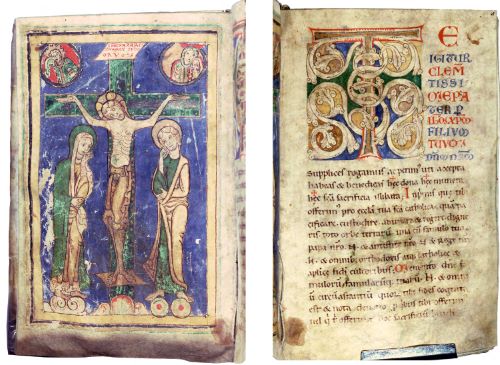 TE
IGITUR
CLEM
TISSI
ME PA
TER P
IHM XPM
FILIUM
TUUM
supplices rogamus ac petim' uti accepta
habeas & benedicas hec dona hec munera
hec sca sacrificia illibata. que tibi
offerim' pro eccla tua sca catholica. quam pa
cificare. custodire. adunare & regere digne
ris toto orbe terrarū. una cū famulo tuo
papa nro. N. & antistite nro. N. & Rege nro
N. & omnib' orthodoxis atq; catholice & a
plice fidei cultoribus. Memento dne fa
mulorum famularumq; tuarū. N. & omniū
circū astantiū quor tibi fides cognita
est & nota devotio p quib' tibi offerim'
vel q t offerunt hoc sacrificiū laudi